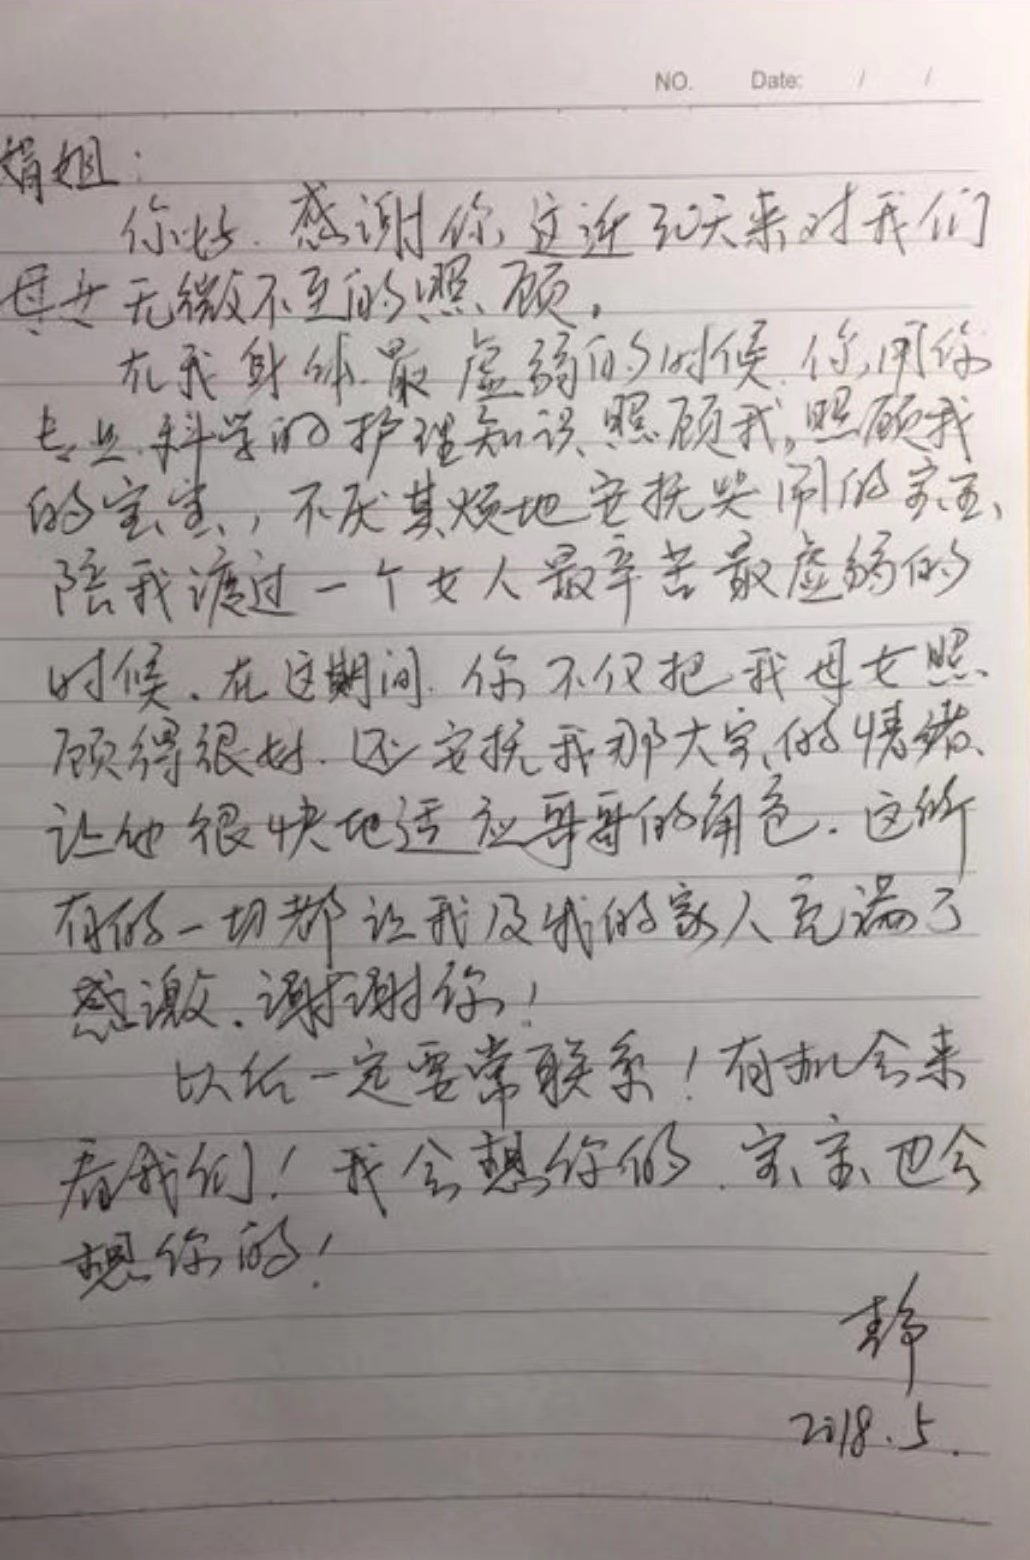 NO. Date: / /
娟姐：
你好．感谢你这近30天来对我们
母女无微不至的照顾。
在我身体最虚弱的时候．你用你
专业．科学的护理知识照顾我，照顾我
的宝宝，不厌其烦地安抚哭闹的宝宝、
陪我渡过一个女人最辛苦最虚弱的
时候．在这期间．你不仅把我母女照
顾得很好．还安抚我那大宝的情绪、
让他很快地适应哥哥的角色．这所
有的一切都让我及我的家人充满了
感激．谢谢你！
以后一定要常联系！有机会来
看我们！我会想你的．宝宝也会
想你的！
静
2018.5.